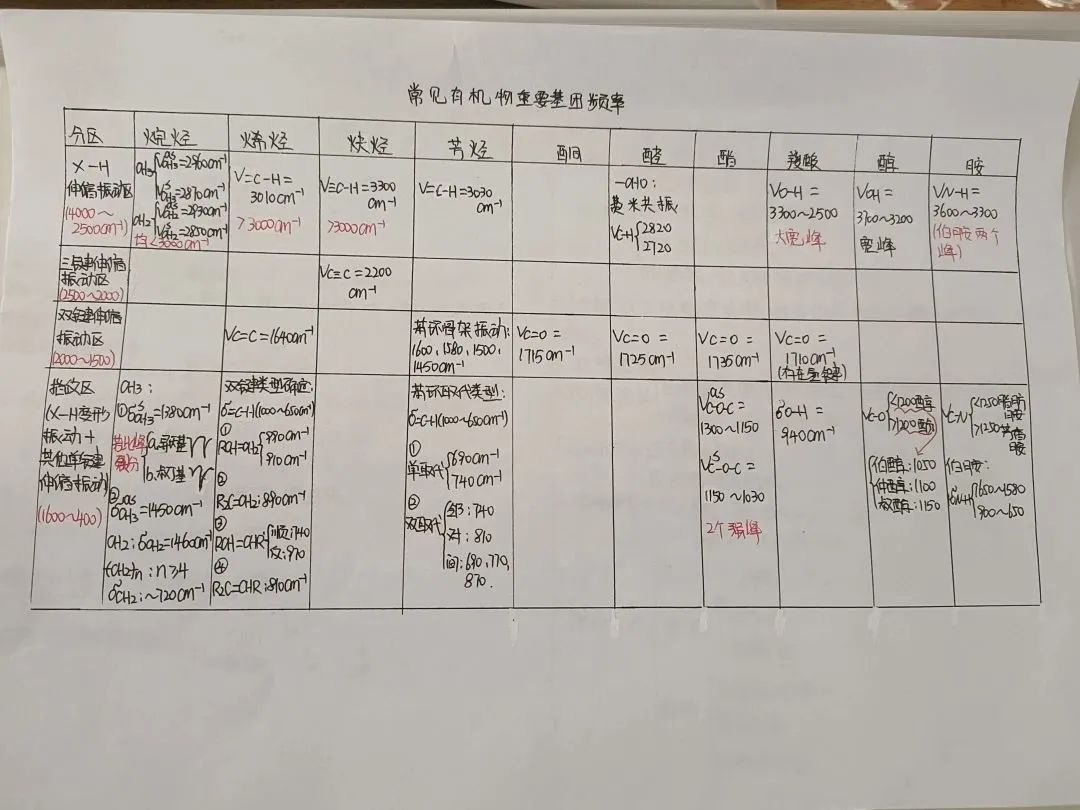 常见有机物重要基团频率
分区 烷烃 烯烃 炔烃 芳烃 酮 醛 酯 羧酸 醇 胺
X-H
伸缩振动区
(4000～
2500cm⁻¹)
CH3 { νas CH3=2960cm⁻¹
νs CH3=2870cm⁻¹
CH2 { νas CH2=2930cm⁻¹
νs CH2=2850cm⁻¹
均<3000cm⁻¹
V=C-H=
3010cm⁻¹
>3000cm⁻¹
V≡C-H=3300
cm⁻¹
>3000cm⁻¹
V=C-H=3030
cm⁻¹
-CHO:
费米共振
VC-H { 2820
2720
VO-H=
3300~2500
大宽峰
VOH=
3700~3200
宽峰
VN-H=
3600~3300
(伯胺两个
峰)
三键伸缩
振动区
(2500~2000)
VC≡C=2200
cm⁻¹
双键伸缩
振动区
(2000~1500)
VC=C=1640cm⁻¹
苯环骨架振动:
1600,1580,1500,
1450cm⁻¹
VC=O=
1715cm⁻¹
VC=O=
1725cm⁻¹
VC=O=
1735cm⁻¹
VC=O=
1710cm⁻¹
(存在氢键)
指纹区
(X-H变形
振动+
其他单键
伸缩振动)
(1600~400)
CH3:
①δs CH3=1380cm⁻¹
裂分
a.异丙基
b.叔丁基
②δas CH3=1450cm⁻¹
CH2:δCH2=1460cm⁻¹
(CH2)n:n≥4
δCH2:~720cm⁻¹
双键类型确定:
δ=C-H(1000~650cm⁻¹)
①
RCH=CH2 { 990cm⁻¹
910cm⁻¹
②
R2C=CH2:890cm⁻¹
③
RCH=CHR { 顺:740
反:970
④
R2C=CHR:810cm⁻¹
苯环取代类型:
δ=C-H(1000~650cm⁻¹)
①
单取代 { 690cm⁻¹
740cm⁻¹
②
双取代 { 邻:740
对:810
间:690,770,
870.
νas C-O-C=
1300~1150
νs C-O-C=
1150~1030
2个强峰
δO-H=
940cm⁻¹
VC-O { <1200醇
>1200酚
伯醇:1050
仲醇:1100
叔醇:1150
VC-N { <1250脂肪
胺
>1250芳香
胺
伯胺:
δN-H { 1650~1580
900~650